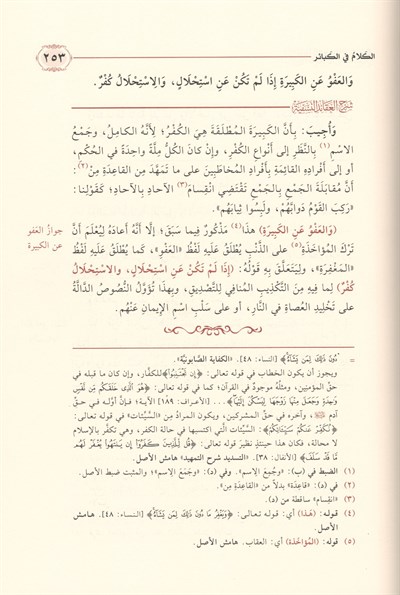 الكلام في الكبائر
٢٥٣
وَالعَفْوُ عَنِ الكَبِيرَةِ إِذَا لَمْ تَكُنْ عَنِ اسْتِحْلَالٍ، وَالِاسْتِحْلَالُ كُفْرٌ.
شرح العقائد النسفية
وَأُجِيبَ: بِأَنَّ الكَبِيرَةَ المُطْلَقَةَ هِيَ الكُفْرُ؛ لِأَنَّهُ الكَامِلُ، وَجَمْعُ
الِاسْمِ (١) بِالنَّظَرِ إِلَى أَنْوَاعِ الكُفْرِ، وَإِنْ كَانَ الكُلُّ مِلَّةً وَاحِدَةً فِي الحُكْمِ،
أَو إِلَى أَفْرَادِهِ القَائِمَةِ بِأَفْرَادِ المُخَاطَبِينَ عَلَى مَا تَمَهَّدَ مِنَ القَاعِدَةِ مِنْ (٢):
أَنَّ مُقَابَلَةَ الجَمْعِ بِالجَمْعِ تَقْتَضِي انْقِسَامَ (٣) الآحَادِ بِالآحَادِ؛ كَقَوْلِنَا:
«رَكِبَ القَوْمُ دَوَابَّهُمْ، وَلَبِسُوا ثِيَابَهُم».
(وَالعَفْوُ عَنِ الكَبِيرَةِ) هَذَا (٤) مَذْكُورٌ فِيمَا سَبَقَ؛ إِلَّا أَنَّهُ أَعَادَهُ لِيُعْلَمَ أَنَّ
جوازُ العفو
تَرْكَ المُؤَاخَذَةِ (٥) عَلَى الذَّنْبِ يُطْلَقُ عَلَيهِ لَفْظُ «العَفْوِ»، كَمَا يُطْلَقُ عَلَيهِ لَفْظُ
عن الكبيرة
«المَغْفِرَةِ»، وَلِيَتَعَلَّقَ بِهِ قَوْلُهُ: (إِذَا لَمْ تَكُنْ عَنِ اسْتِحْلَالٍ، وَالِاسْتِحْلَالُ
كُفْرٌ) لِمَا فِيهِ مِنَ التَّكْذِيبِ المُنَافِي لِلتَّصْدِيقِ، وَبِهَذَا تُؤَوَّلُ النُّصُوصُ الدَّالَّةُ
عَلَى تَخْلِيدِ العُصَاةِ فِي النَّارِ، أَو عَلَى سَلْبِ اسْمِ الإِيمَانِ عَنْهُم.
= دُونَ ذَلِكَ لِمَن يَشَاءُ﴾ [النساء: ٤٨]. «الكفاية الصابونيَّة».
ويجوز أن يكون الخطاب في قوله تعالى: ﴿إِن تَجْتَنِبُوا﴾ للكفار، وإن كان ما قبله في
حقِّ المؤمنين، ومثلُه موجودٌ في القرآن؛ كما في قوله تعالى: ﴿هُوَ الَّذِي خَلَقَكُم مِّن نَّفْسٍ
وَاحِدَةٍ وَجَعَلَ مِنْهَا زَوْجَهَا لِيَسْكُنَ إِلَيْهَا﴾... [الأعراف: ١٨٩] الآية؛ فإنَّ أوَّله في حقِّ
آدم ﷺ، وآخره في حقِّ المشركين، ويكون المرادُ مِنَ «السيِّئات» في قوله:
﴿نُكَفِّرْ عَنكُمْ سَيِّئَاتِكُمْ﴾: السيِّئات التي اكتسبها في حالة الكفر، وهي تكفَّر بالإسلام
لا محالة، فكان هذا حينئذٍ نظيرَ قوله تعالى: ﴿قُل لِّلَّذِينَ كَفَرُوا إِن يَنتَهُوا يُغْفَرْ لَهُم
مَّا قَدْ سَلَفَ﴾ [الأنفال: ٣٨]. «التسديد شرح التمهيد» هامش الأصل.
(١) الضبط في (ب): «وجُمِعَ الاسم»، وفي (د): «وجَمْعَ الاِسم»؛ والمثبت ضبط الأصل.
(٢) في (د): «قاعِدَة» بدلاً من «القاعِدَةِ مِن».
(٣) «انقِسام» ساقطة من (د).
(٤) قوله: (هَذَا) أي: قوله تعالى: ﴿وَيَغْفِرُ مَا دُونَ ذَلِكَ لِمَن يَشَاءُ﴾ [النساء: ٤٨]. هامش
الأصل.
(٥) قوله: (المُؤَاخَذَة) أي: العقاب. هامش الأصل.